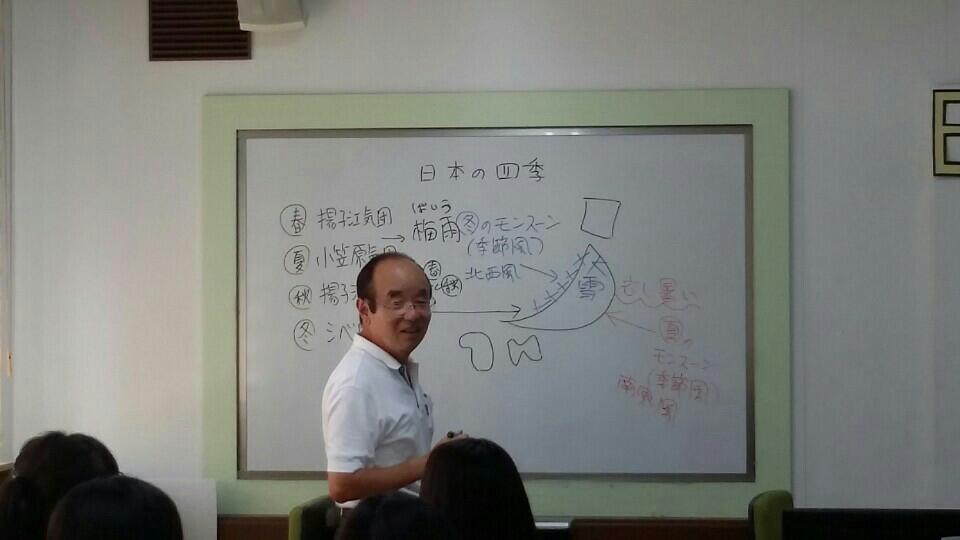 日本の四季
春 揚子江気団
→
ばいう
梅雨
夏 小笠原気団
秋 揚子江
冬 シベ
冬のモンスーン
(季節風)
北西風
雪
むし暑い
夏の
モンスーン
(季節風)